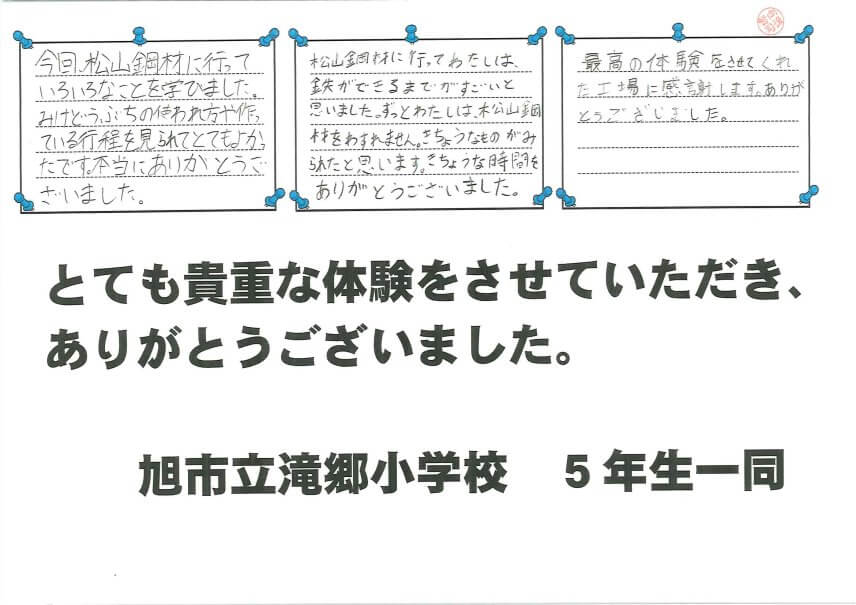 今回、松山鋼材に行って
いろいろなことを学びました。
みけどうぶちの使われ方や作っ
ている行程を見られてとてもよかっ
たです。本当にありがとうご
ざいました。
松山鋼材に行ってわたしは、
鉄ができるまでがすごいと
思いました。ずっとわたしは、松山鋼
材をわすれません。きちょうなものがみ
られたと思います。きちょうな時間を
ありがとうございました。
最高の体験をさせてくれ
た工場に感謝します。ありが
とうございました。
とても貴重な体験をさせていただき、
ありがとうございました。
旭市立滝郷小学校　５年生一同